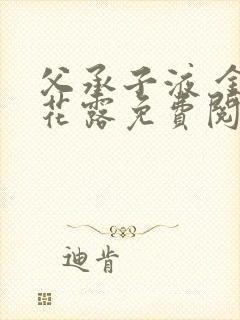 父承子液 金
花露免費閱
迪肯